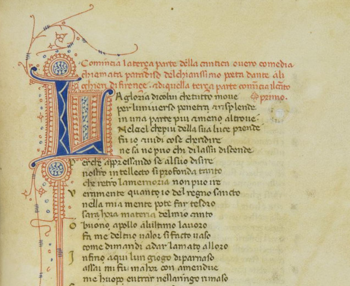 Comincia la terça parte della cantica overo comedia
chiamata paradiso del chiarissimo poeta dante ali
ghieri di firençe. a di quella terça parte comincia il cãto
primo.
La gloria di colui che tutto move
per luniverso penetra et risplende
in una parte piu et meno altrove
Nel ciel che piu della sua luce prende
fu io et vidi cose che ridire
ne sa ne puo chi di lassu discende
Perche apressando se al suo disire
nostro intellecto si profonda tanto
che retro la memoria non puo ire
Veramente quantio del regno sancto
nella mia mente pote far tesoro
sara hora materia del mio canto
O buono apollo alultimo lavoro
fa me del tuo valor si facto vaso
come dimandi a dar lamato alloro
Infino a qui lun giogo di parnaso
assai mi fu ma hor con amendue
me huopo entrar nellaringo rimaso